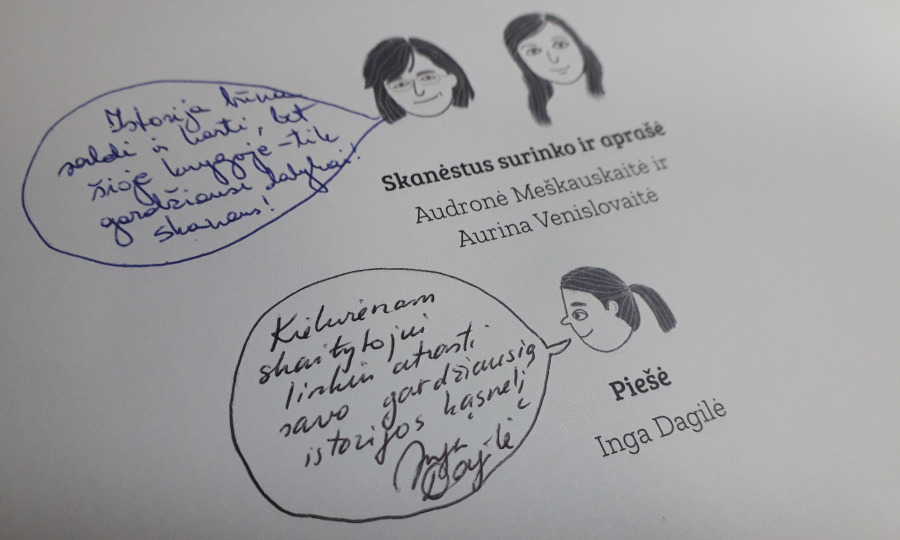 Istorija būna
saldi ir karti, bet
šioje knygoje - tik
gardžiausi dalykai!
skanaus!
Skanėstus surinko ir aprašė
Audronė Meškauskaitė ir
Aurina Venislovaitė
Kiekvienam
skaitytojui
linkiu atrasti
savo gardžiausią
istorijos kąsnelį
Inga
Dagilė
Piešė
Inga Dagilė